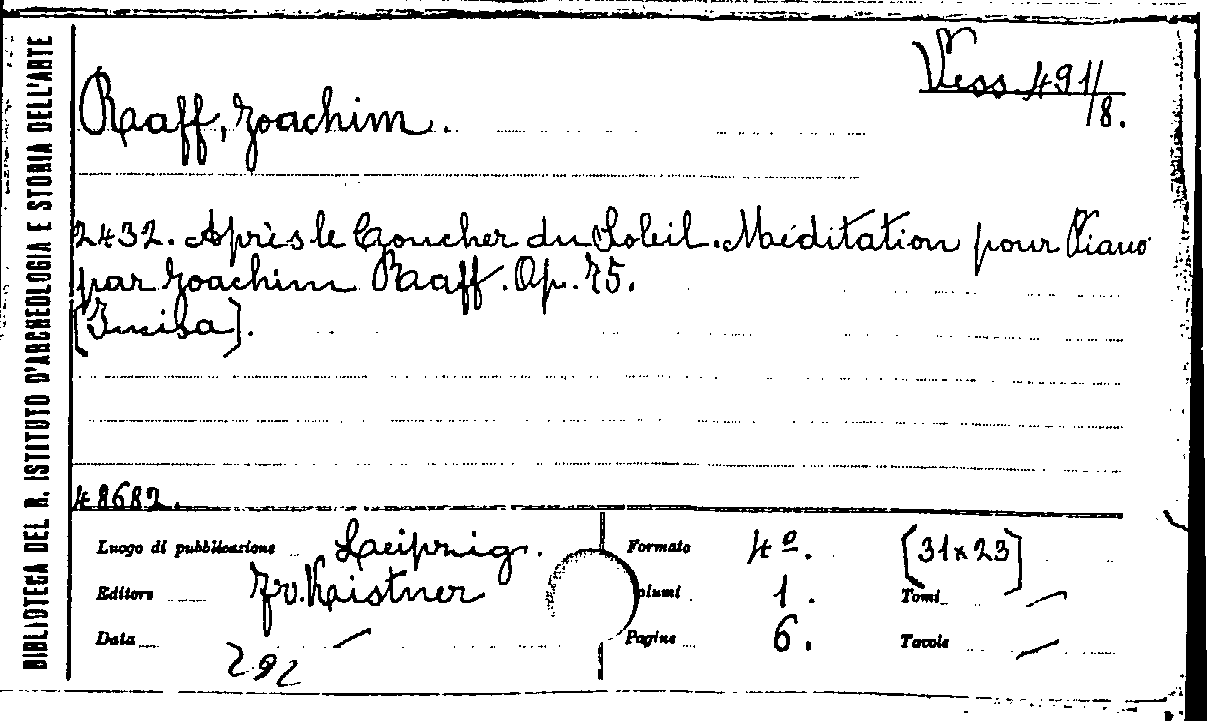 BIBLIOTECA DEL R. ISTITUTO D'ARCHEOLOGIA E STORIA DELL'ARTE
Vess 491/8.
Raff, Joachim.
2432. Après le Coucher du Soleil. Méditation pour Piano
par Joachim Raff. Op. 75.
[Incisa].
48682.
Luogo di pubblicazione Leipzig. Formato 4º. [31x23]
Editore Fr. Kistner Volumi 1. Tomi —
Data — Pagine 6. Tavole —
292